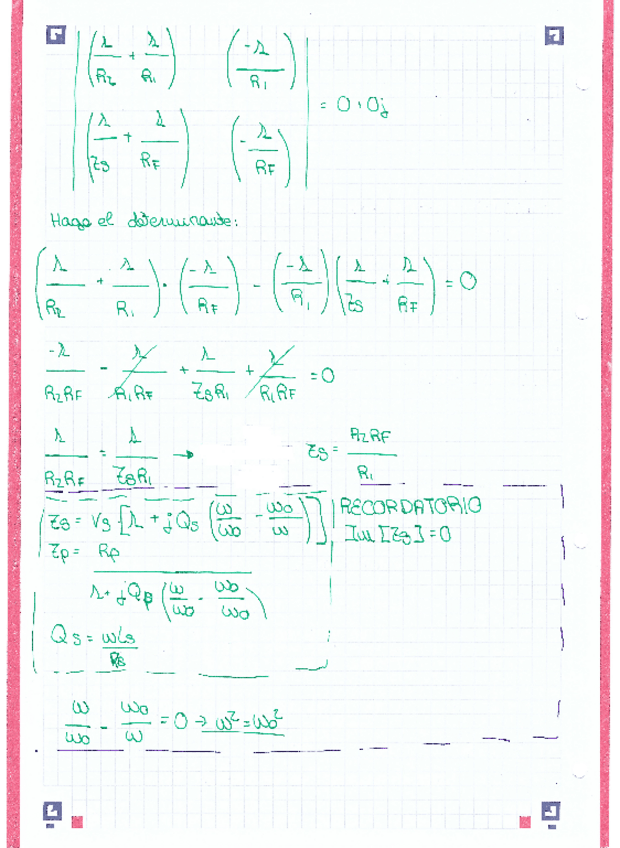 | (1/R2 + 1/R1)   (-1/R1) |
| (1/Zs + 1/RF)   (-1/RF) | = 0+0j
Hago el determinante:
(1/R2 + 1/R1) · (-1/RF) - (-1/R1) (1/Zs + 1/RF) = 0
-1/R2RF - 1/R1RF + 1/ZsR1 + 1/R1RF = 0
1/R2RF = 1/ZsR1 → Zs = R2RF/R1
Zs = rs [1 + jQs (ω/ω0 - ω0/ω)]
RECORDATORIO
Im [Zs] = 0
Zp = Rp / 1 + jQp (ω/ω0 - ω0/ω0)
Qs = ωLs/Rs
ω/ω0 - ω0/ω = 0 → ω² = ω0²